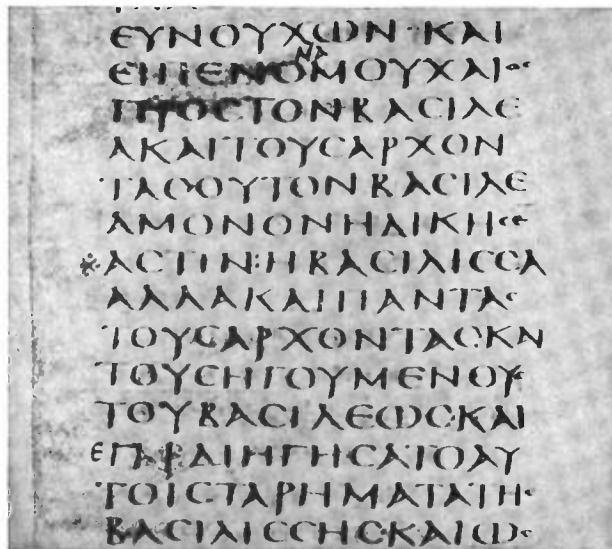 ΕΥΝΟΥΧΩΝ·ΚΑΙ
ΝΑ
ΕΙΠΕΝΟΜΟΥΧΑΙΟϹ
ΠΡΟϹΤΟΝΒΑϹΙΛΕ
ΑΚΑΙΤΟΥϹΑΡΧΟΝ
ΤΑϹΟΥΤΟΝΒΑϹΙΛΕ
ΑΜΟΝΟΝΗΔΙΚΗϹΕ
ΑϹΤΙΝ:ΗΒΑϹΙΛΙϹϹΑ
ΑΛΛΑΚΑΙΠΑΝΤΑϹ
ΤΟΥϹΑΡΧΟΝΤΑϹΚΑΙ
ΤΟΥϹΗΓΟΥΜΕΝΟΥϹ
ΤΟΥΒΑϹΙΛΕΩϹ·ΚΑΙ
ΔΙΗΓΗϹΑΤΟΑΥ
ΤΟΙϹΤΑΡΗΜΑΤΑΤΗϹ
ΒΑϹΙΛΙϹϹΗϹ·ΚΑΙΩϹ